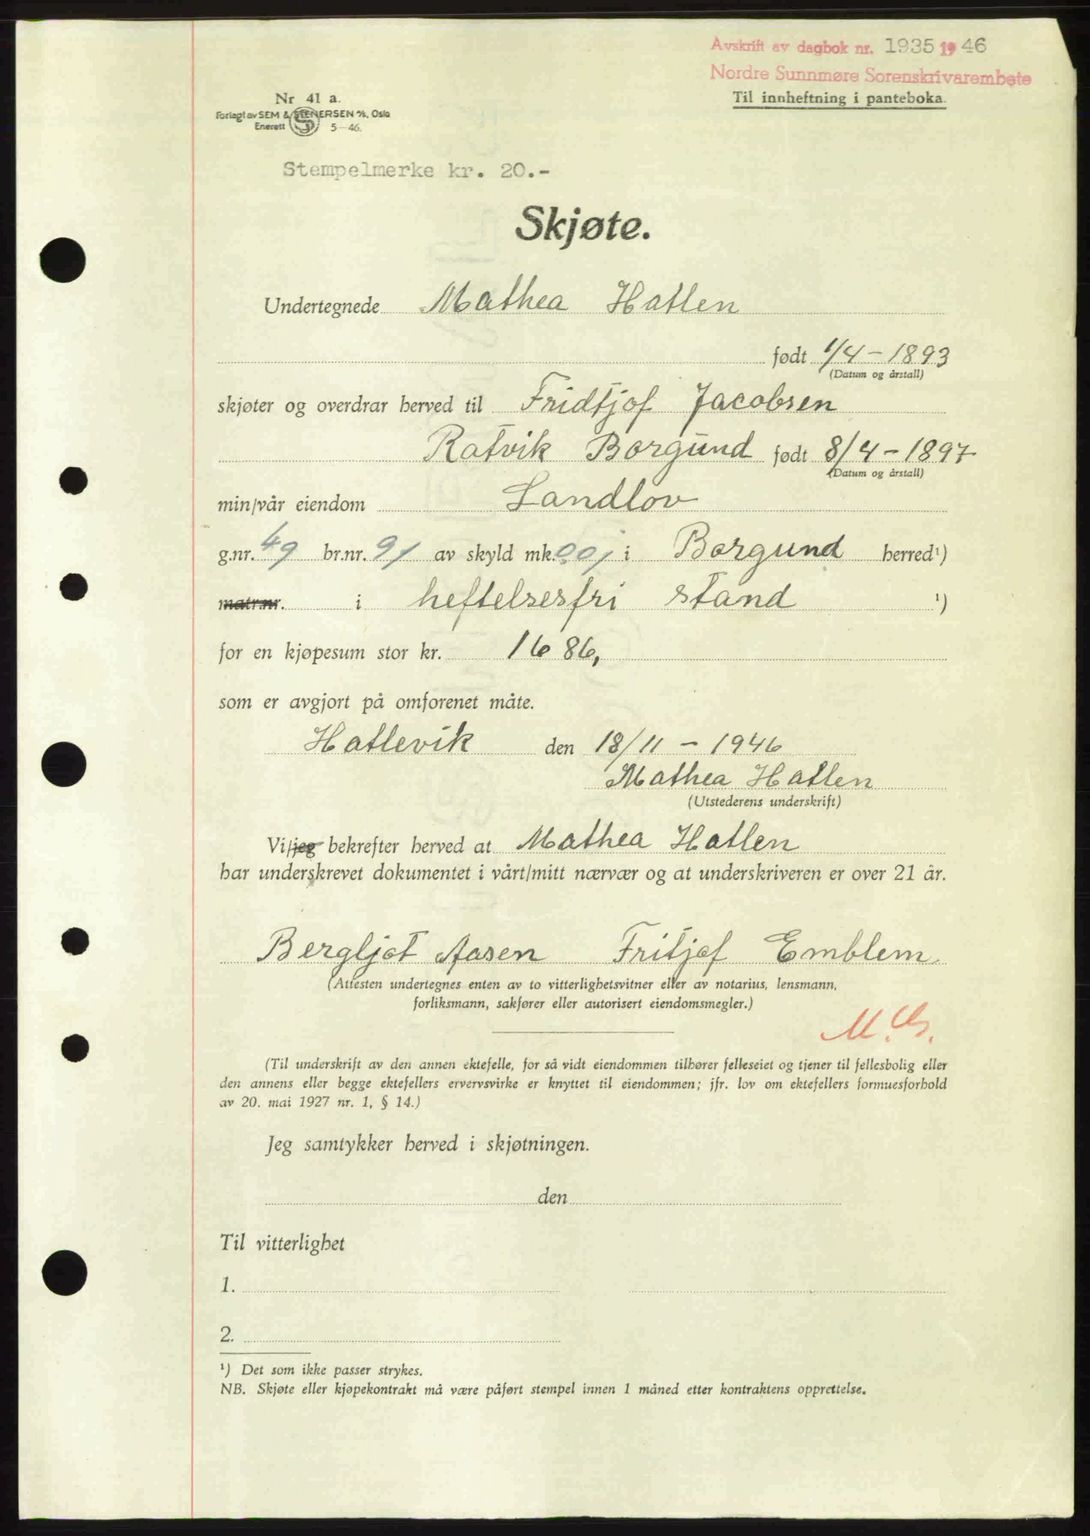 Avskrift av dagbok nr. 1935 1946
Nordre Sunnmøre Sorenskrivarembete
Til innheftning i panteboka.
Nr 41 a.
Forlagt av SEM & STENERSEN A/S, Oslo
Enerett 5—46.
Stempelmerke kr. 20.-
Skjøte.
Undertegnede Mathea Hatlen
født 1/4 - 1893
(Datum og årstall)
skjøter og overdrar herved til Fridtjof Jacobsen
Ratvik Borgund født 8/4 - 1897
(Datum og årstall)
min/vår eiendom Landlov
g.nr. 49 br.nr. 91 av skyld mk. i Borgund herred¹)
matr.nr. i heftelsesfri stand ¹)
for en kjøpesum stor kr. 1686,
som er avgjort på omforenet måte.
Hatlevik den 18/11 - 1946
Mathea Hatlen
(Utstederens underskrift)
Vi/jeg bekrefter herved at Mathea Hatlen
har underskrevet dokumentet i vårt/mitt nærvær og at underskriveren er over 21 år.
Bergljot Aasen Fritjof Emblem.
(Attesten undertegnes enten av to vitterlighetsvitner eller av notarius, lensmann,
forliksmann, sakfører eller autorisert eiendomsmegler.)
(Til underskrift av den annen ektefelle, for så vidt eiendommen tilhører felleseiet og tjener til fellesbolig eller
den annens eller begge ektefellers ervervsvirke er knyttet til eiendommen; jfr. lov om ektefellers formuesforhold
av 20. mai 1927 nr. 1, § 14.)
Jeg samtykker herved i skjøtningen.
den
Til vitterlighet
1.
2.
¹) Det som ikke passer strykes.
NB. Skjøte eller kjøpekontrakt må være påført stempel innen 1 måned etter kontraktens opprettelse.